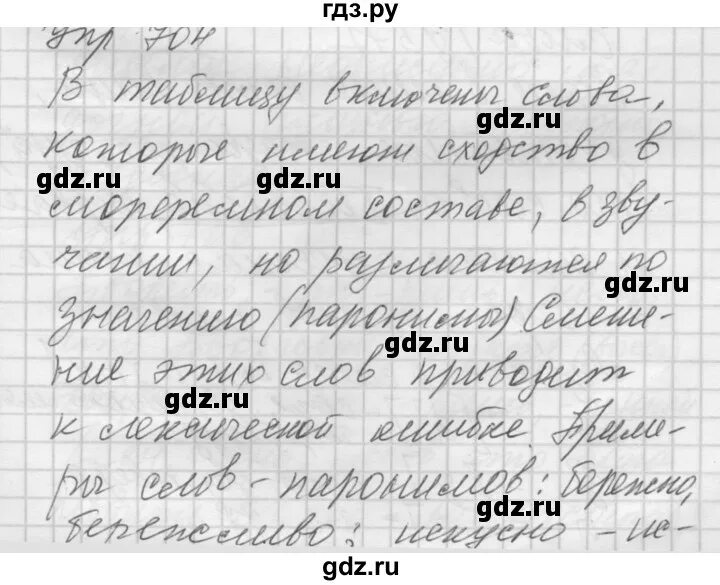 гдз.ру
Упр 704
В таблицу включены слова,
gdz.ru
которые имеют сходство в
gdz.ru gdz.ru
морфемном составе, в зву-
чании, но различаются по
gdz.ru
значению (паронимы) Смеше-
gdz.ru
ние этих слов приводит
gdz.ru
к лексической ошибке. Приме-
ры слов - паронимов: бережно,
gdz.ru gdz.ru
бережливо; искусно - ис-
gdz.ru